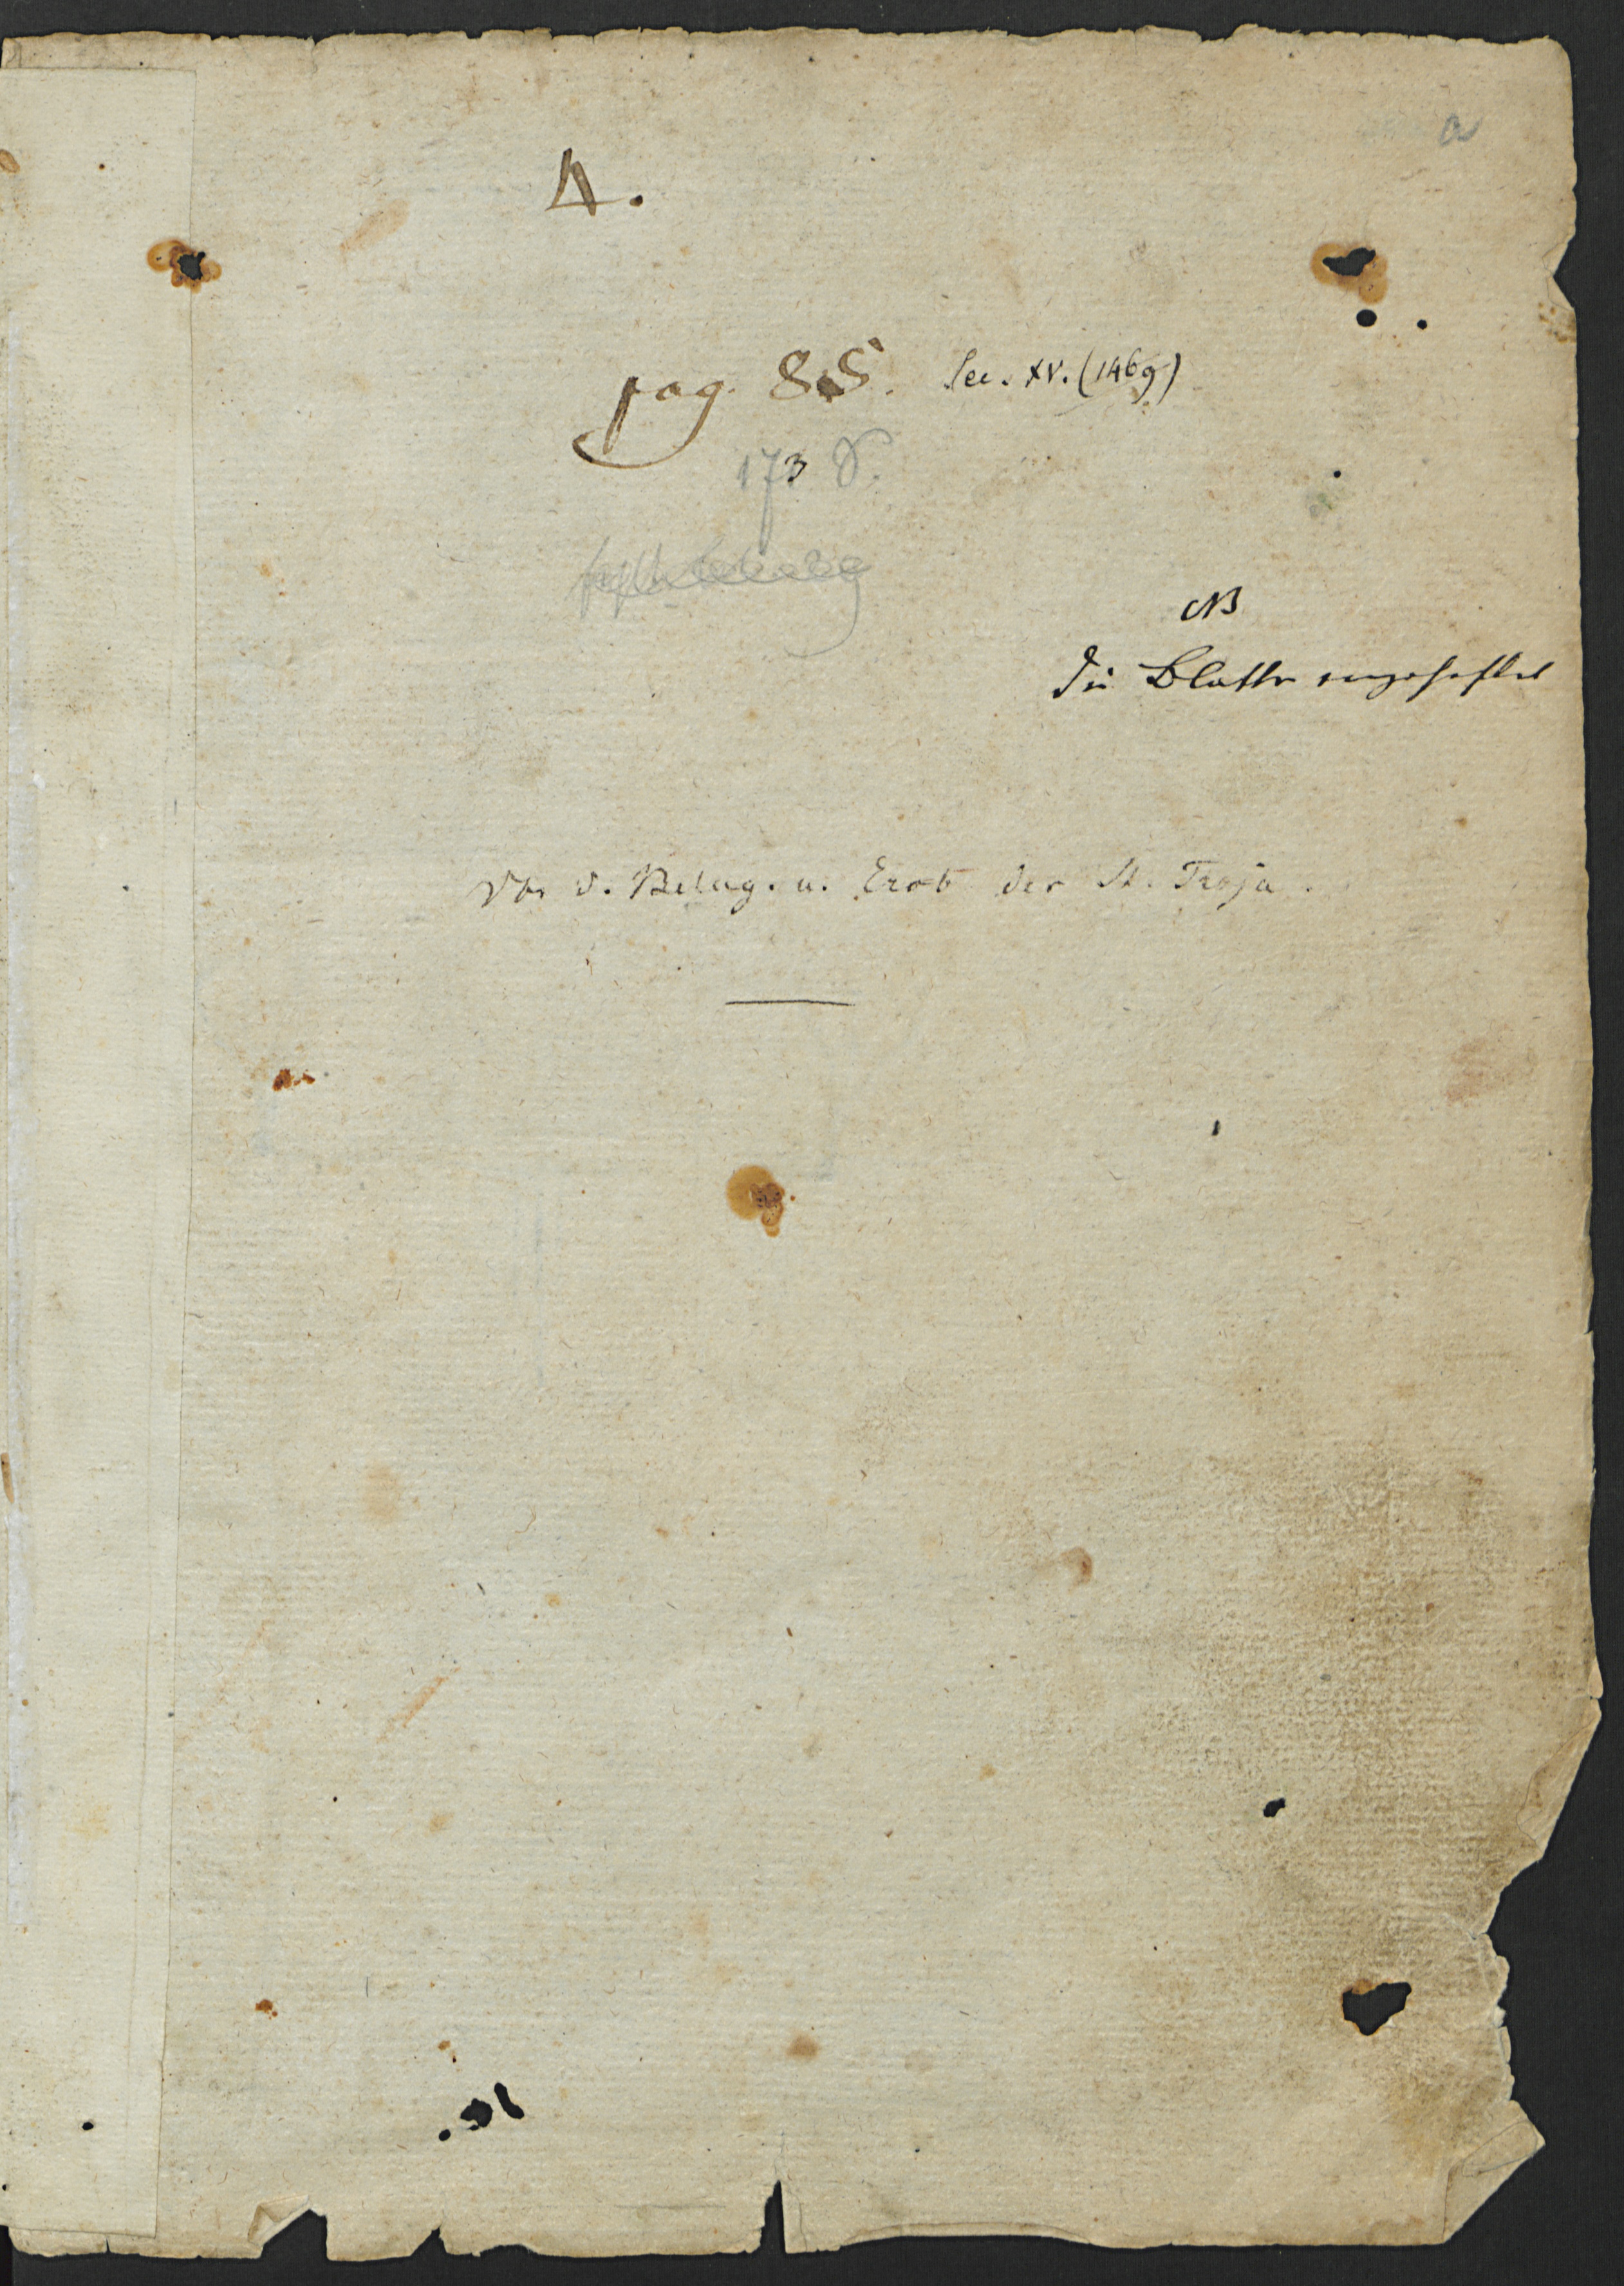 a
4.
pag. 85. Sec. XV. (1469)
173
NB
die Blatter eingeheftet
Von d. Belag. u. Erob der St. Troja.